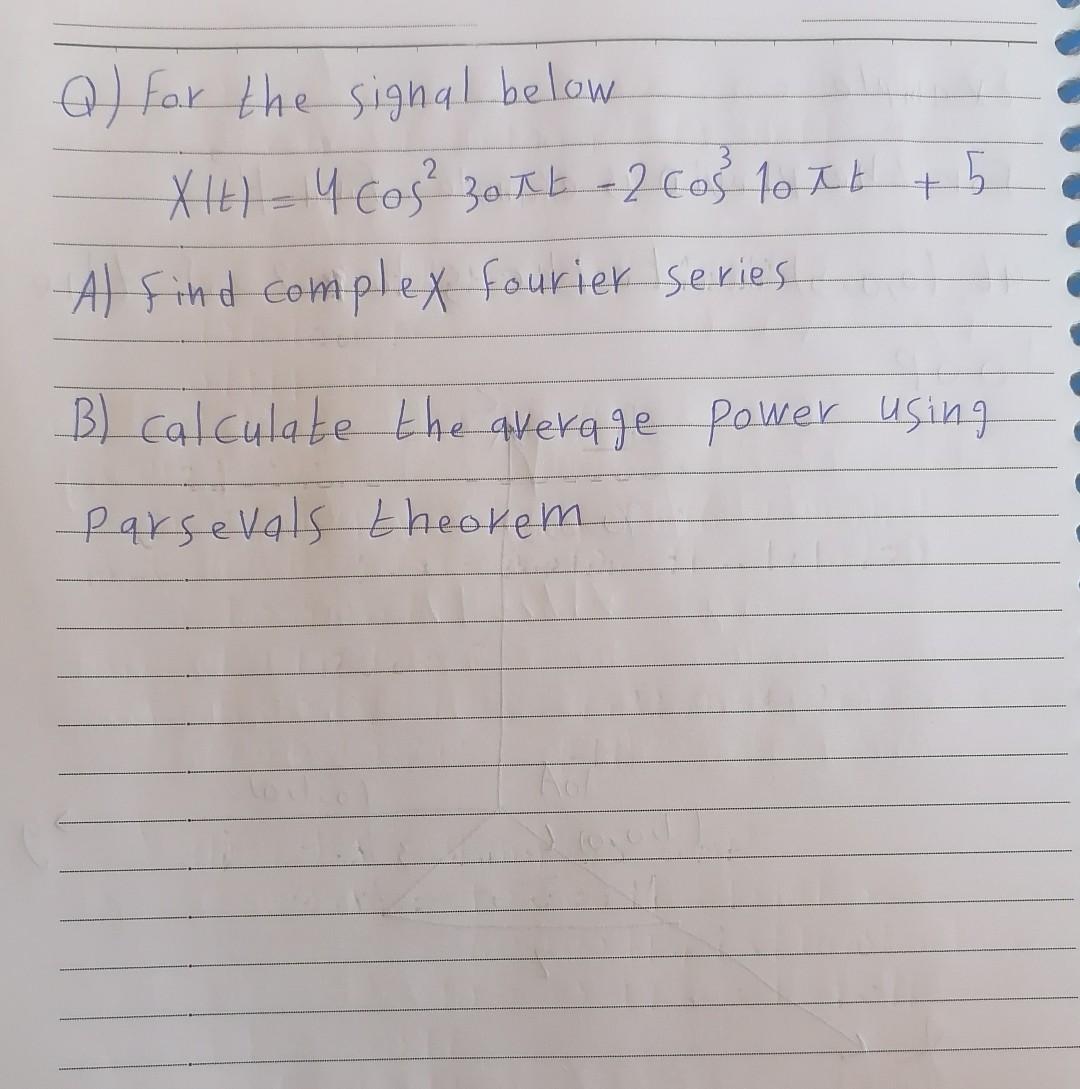 Q) For the signal below
X(t) = 4 cos² 30πt - 2 cos³ 10πt + 5
A) find complex fourier series
B) calculate the average power using
parsevals theorem